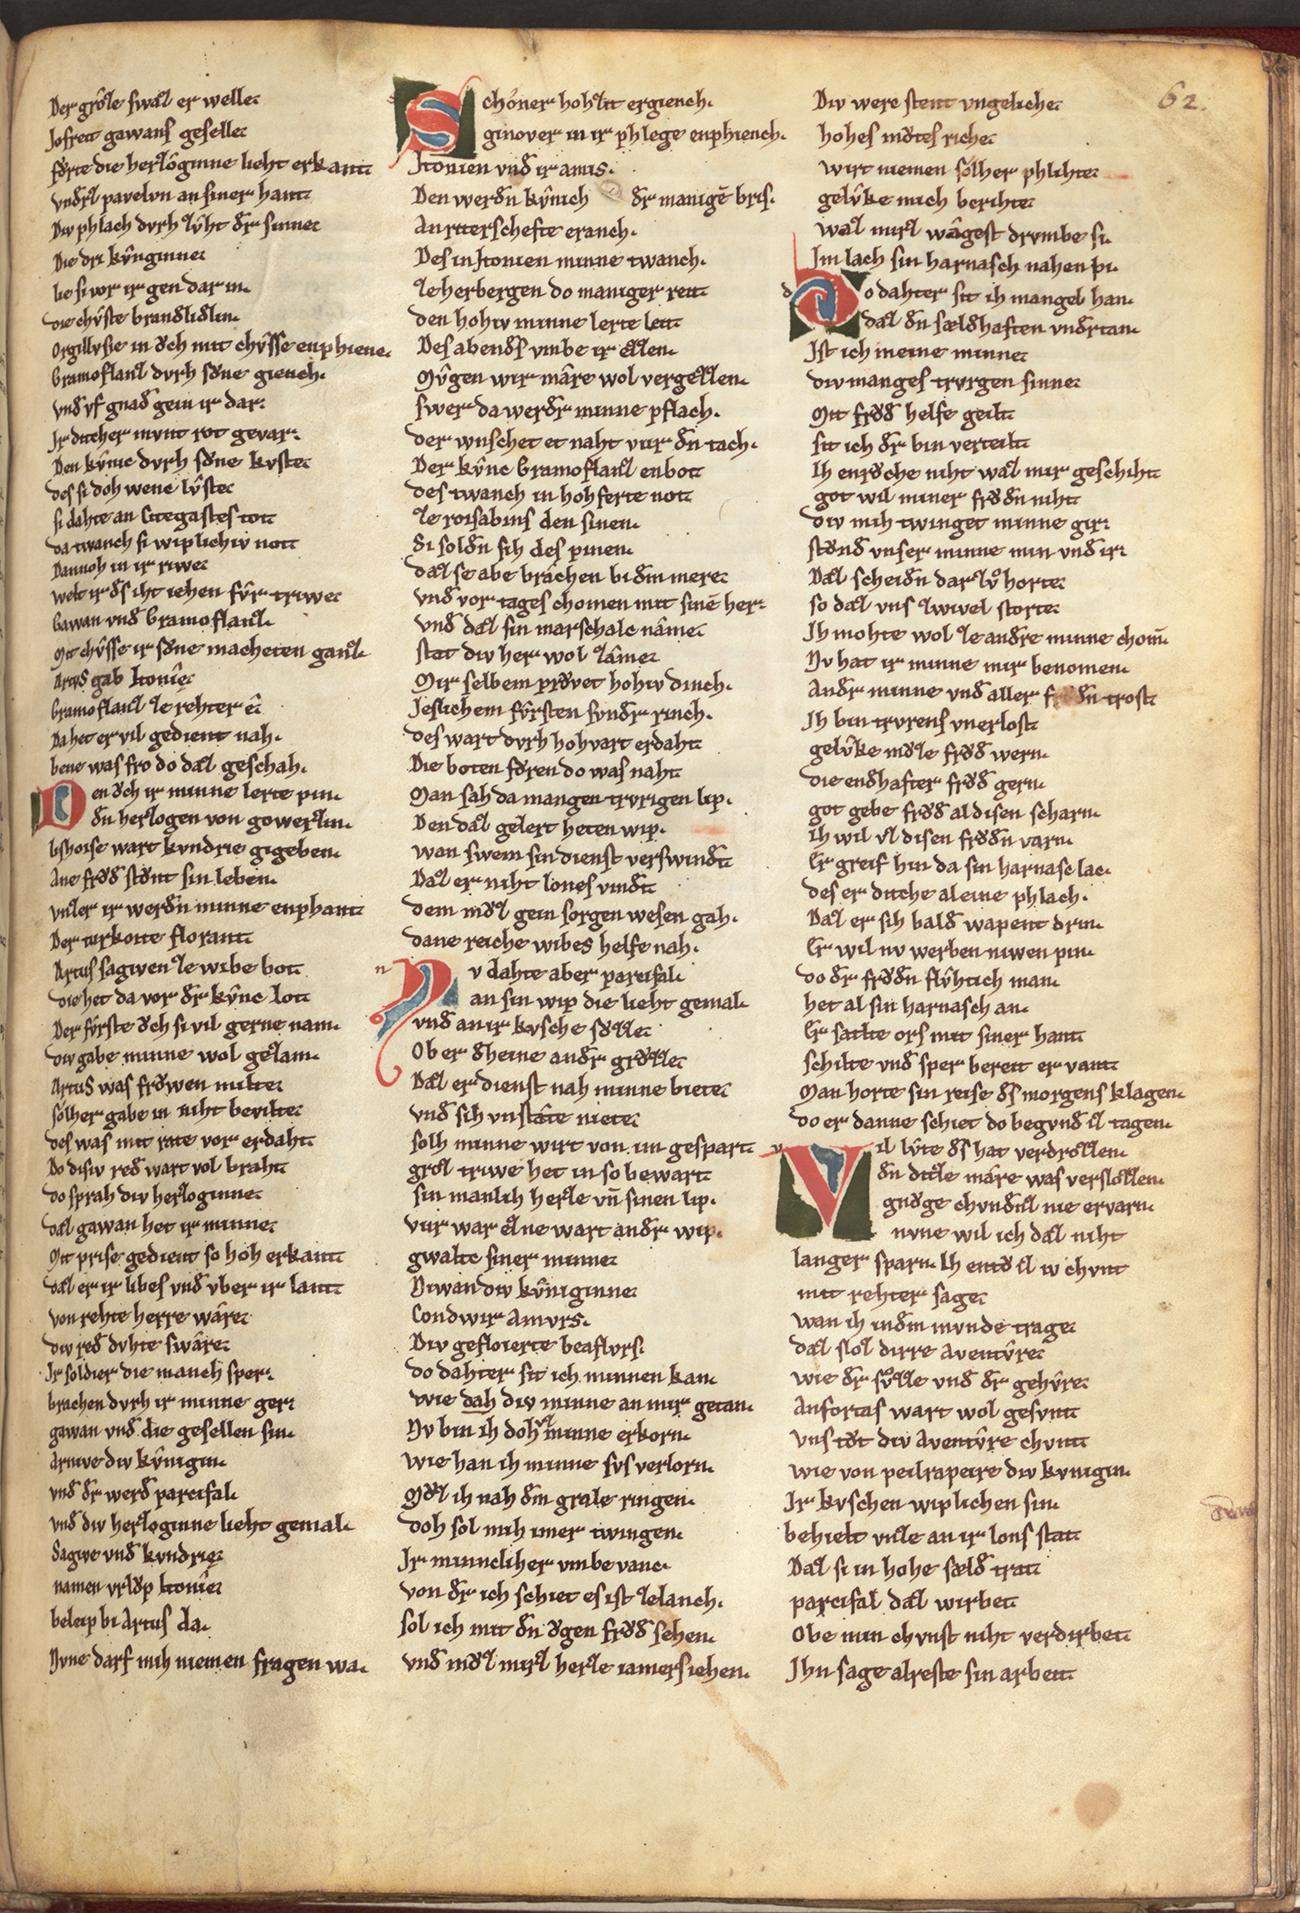 Der grôze swaz er wellet
Jofreit gawans gesellet
fv̊rte die herzôginne lieht erkant
vnd᷑ͥ pavelvn an siner hant
Div phlach dvrh zv̂ht d᷑r sinnet
Die dri kv̂nginnet
lie si wr ir gen dar in.
die chv̂ste brandlidlin.
Orgillvsie in ŏch mit chv̂sse enphiench.
Gramoflanz dvrh sv̊ne giench.
vnd᷑ vf gnad᷑ gein ir dar.
Jr svͤzer mvnt rot gevar.
Den kv̂nic dvrh sv̊ne kvstet
des si doh wenen lv̂stet
si dahte an Citegastes tot
da twanch si wiplichiv not
Dannoh in ir riwet
welt ir d᷑s iht iehen fv̂r triwet
Gawan vnd᷑ Gramoflanz.
Mit chv̂sse ir sv̊ne macheten ganz.
Artvs gab Itoniêr
Gramoflanz ze rehter ê.
Da het er vil gedient nah.
bene was fro do daz geschah.
Den ŏch ir minne lerte pin.
d᷑n herzogen von gowerzin.
lishoise wart kvndrie gigeben.
Ane frŏd᷑ stv̊nt sin leben.
vnzer ir werd᷑n minne enphant
Der turkoite florant
Artus sagiven ze wibe bot
die het da vor d᷑r kv̂nc lot
Der fv̂rste ŏch si vil gerne nam.
div gabe minne wol gezam.
Artus was frŏwen miltet
sölher gabe in niht beviltet
des was mit rate vor erdaht
Do disiv red᷑ wart vol braht
do sprah div herzoginnet
daz gawan het ir minnet
Mit prise gedient so hoh erkant
daz er ir libes vnd᷑ vber ir lant
von rehte herre wâret
div red᷑ dvhte swâret
Jr soldier die manch sper.
brachen dvrh ir minne ger.
gawan vnd᷑ die gesellen sin.
Arnive div kv̂nigin.
vnd᷑ d᷑r werd᷑ parcifal.
vnd᷑ div herzoginne lieht gemal.
Sagive vnd᷑ kvndriet
namen vrlŏp Itoniêt
beleip bi Artus da.
Nvne darf mih niemen fragen wa.
Schöner hohzit ergiench.
ginover in ir phlege enphiench.
Itonien vnd᷑ ir amis.
Den werd᷑n kv̂nich d᷑r manigē bris.
An riterschefte eranch.
Des in Itonien minne twanch.
ze herbergen do maniger reit
den hohiv minne lerte leit
Des abend᷑s vmbe ir ezzen.
Mv̂gen wir mâre wol vergezzen.
swer da werd᷑r minne pflach.
der wnschet et naht vur d᷑n tach.
Der kv̂nc Gramoflanz enbot
des twanch in hohferte not
ze roisabins den sinen.
Si sold᷑n sih des pinen.
daz se abe brâchen bi d᷑m meret
vnd᷑ vor tages chomen mit sinē her.
vnd᷑ daz sin marschalc nâmet
stat div her wol zâmet
Mir selbem prv̊vet hohiv dinch.
Jeslichem fv̂rsten svnd᷑r rinch.
des wart dvrh hohvart erdaht
Die boten fv̊ren do was naht
Man sah da mangen trvrigen lip.
Den daz gelert heten wip.
wan swem sin dienst verswind᷑t
Daz er niht lones vind᷑t
dem mv̊z gein sorgen wesen gah.
dane reiche wibes helfe nah.
Nv dahte aber parcifal.
an sin wip die lieht gemal.
vnd᷑ an ir kvsche sv̊zzet
Ob er d᷑heine and᷑r grv̊zzet
Daz er dienst nah minne bietet
vnd᷑ sih vnstâte nietet
solh minne wirt von im gespart
groz triwe het in so bewart
sin manlih herze vn̄ sinen lip.
vur war ezne wart and᷑r wip.
gwaltc siner minnet
Niwan div kv̂niginnet
Condwir Amvrs.
Div gefloierte beaflvrs.
do dahter sit ich minnen kan.
wie dah div minne an mir getan.
Nv bin ih doh vz minne erkorn.
wie han ih minne svs verlorn.
Mv̊z ih nah d᷑m grale ringen.
doh sol mih imer twingen.
Jr minnclicher vmbevanc.
von d᷑r ich schiet es ist zelanch.
sol ich mit d᷑n ŏgen frŏd᷑ sehen.
vnd᷑ mv̊z mirz herze iamers iehen.
Div were stent vngelichet
hohes mv̊tes richet
wirt niemen sölher phlichtet
gelv̂ke mich berihtet
waz mirz wâgest drvmbe si.
Im lach sin harnasch nahen bi.
Do dahter sit ih mangel han.
daz d᷑n sæld᷑haften vnd᷑rtan.
Jst ich meine minnet
div manges trvrgen sinnet
Mit frŏd᷑ helfe geilt
sit ich d᷑r bin verteilt
Jh enrv̊che niht waz mir geschiht
got wil miner frŏd᷑n niht
div mih twinget minne gir.
stv̊nd vnser minne min vnd᷑ ir.
Daz scheid᷑n dar zv̊ hortet
so daz vns zwivel stortet
Jh mohte wol ze and᷑re minne chom̄.
Nv hat ir minne mir benomen.
And᷑r minne vnd᷑ aller frŏd᷑n trost
Jh bin trvrens vnerlost
gelv̂ke mv̊ze frŏd᷑ wern.
die end᷑hafter frŏd᷑ gern.
got gebe frŏd᷑ al disen scharn.
ih wil vz disen frŏd᷑n varn.
Er greif hin da sin harnasc lac.
des er dicke aleine phlach.
Daz er sih bald᷑ wapent drin.
Er wil nv werben niwen pin.
do d᷑r frŏd᷑n flv̂htich man.
het al sin harnasch an.
Er satlte ors mit siner hant
schilte vnd᷑ sper bereit er vant
Man horte sin reise d᷑s morgens klagen.
do er danne schiet do begvnd᷑ iz tagen.
Vil lv̂te d᷑s hat verdrozzen.
d᷑n ditze mâre was verslozzen.
gnv̊ge chvnd᷑nz nie ervarn.
nvne wil ich daz niht
langer sparn. Jh entv̊ iz iv chvnt
mit rehter saget
wan ih in d᷑m mvnde traget
daz sloz dirre aventv̂ret
wie d᷑r sv̊zze vnd᷑ d᷑r gehv̂ret
Anfortas wart wol gesvnt
vns tv̊t div Aventv̂re chvnt
wie von peilrapeire div kvnigin.
Jr kvschen wiplichen sin.
behielt vnze an ir lons stat
Daz si in hohe sæld᷑ trat
parcifal daz wirbet
Obe min chvnst niht verdirbet
Jhn sage alreste sin arbeit
62.